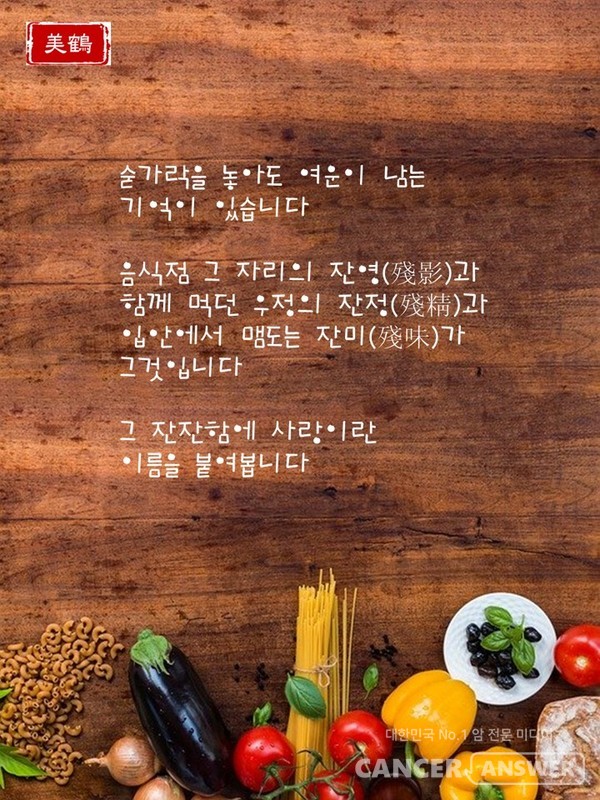 美鶴
숟가락을 놓아도 여운이 남는
기억이 있습니다
음식점 그 자리의 잔영(殘影)과
함께 먹던 우정의 잔정(殘精)과
입안에서 맴도는 잔미(殘味)가
그것입니다
그 잔잔함에 사랑이란
이름을 붙여봅니다
대한민국 No.1 암 전문 미디어
CANCER ANSWER